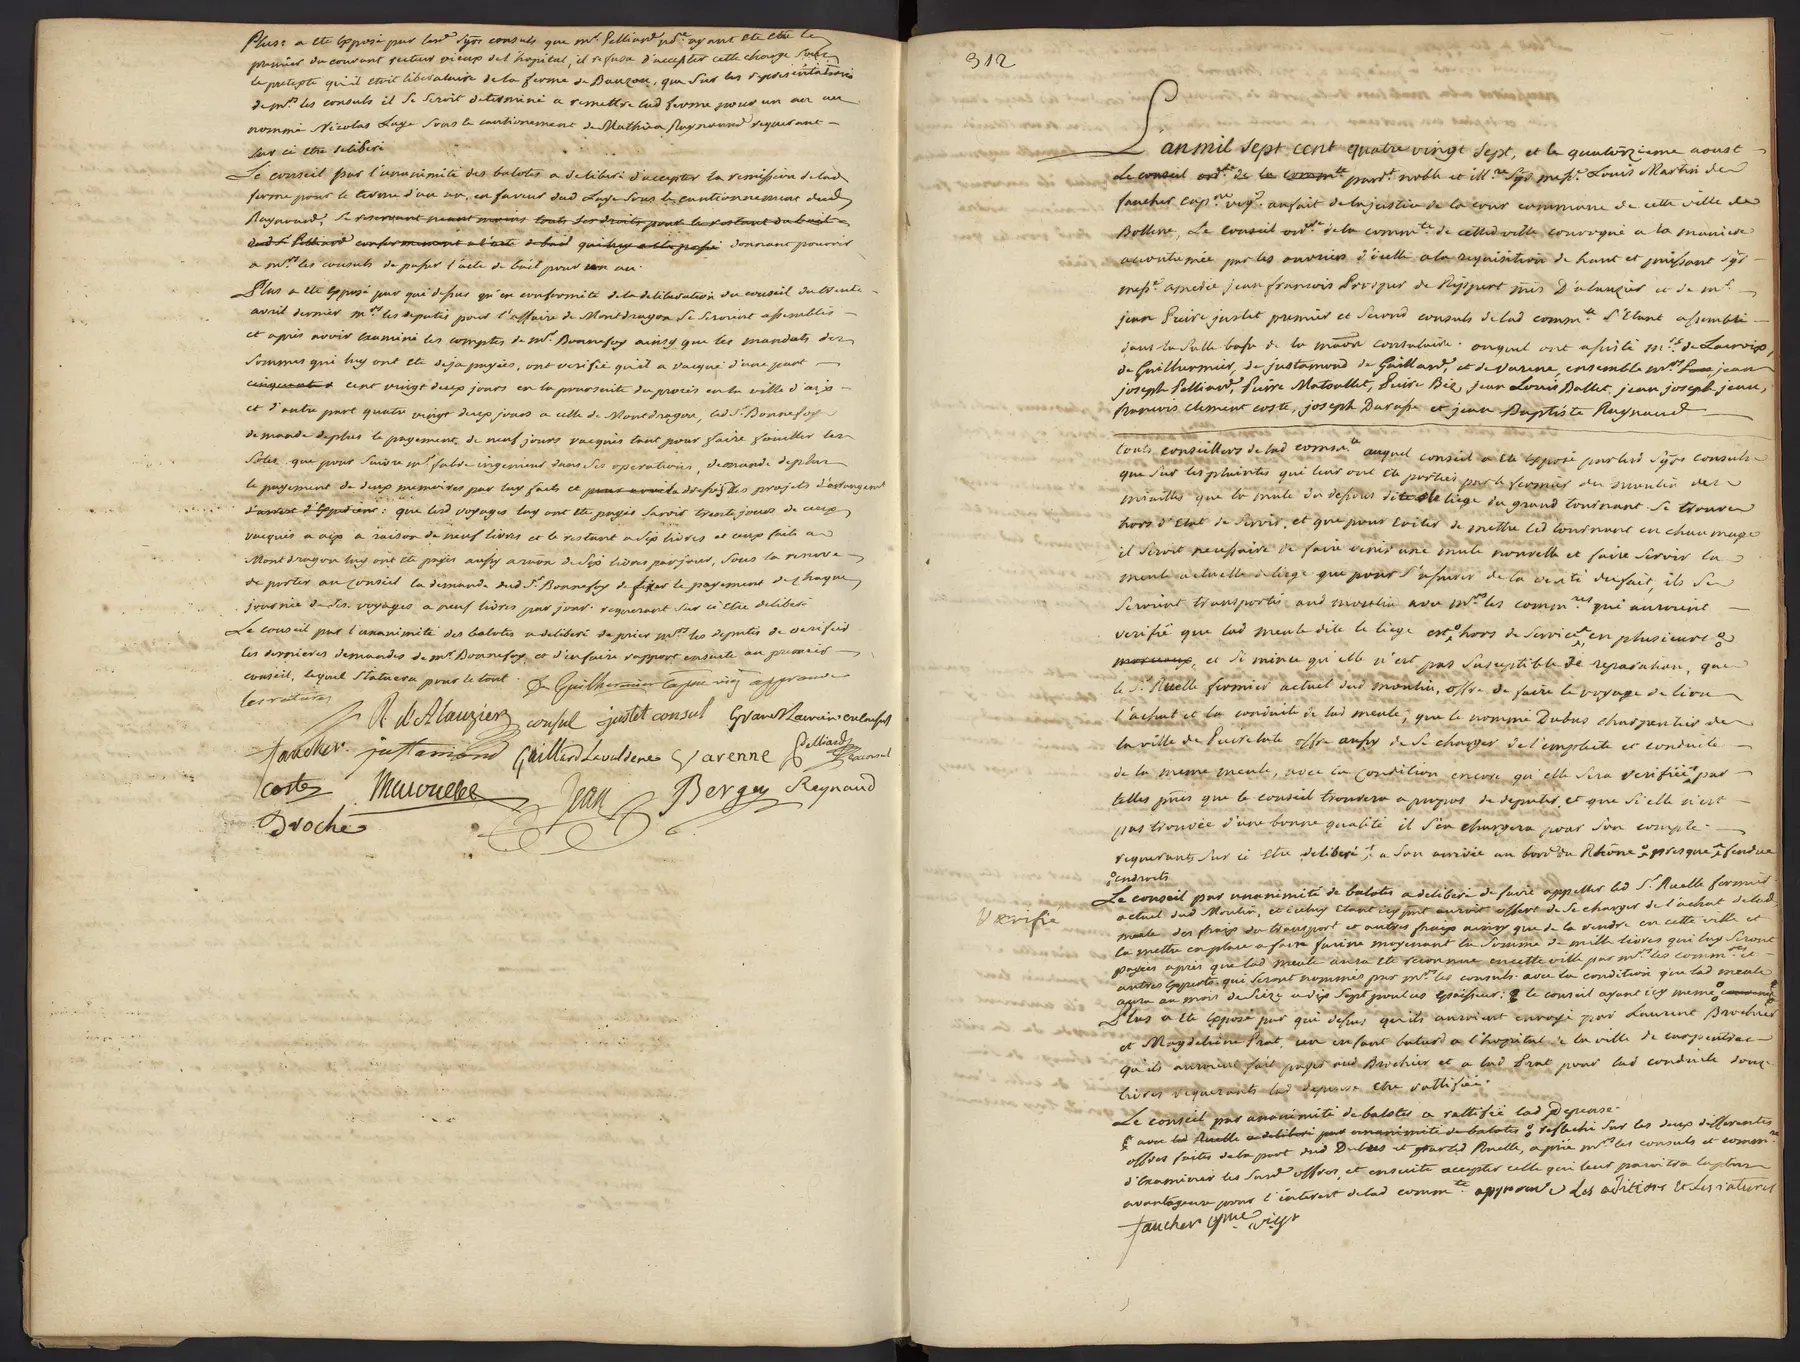 Plus a ete exposé par lesd. srs. consuls que mr. Pelliard, ayant ete elu le
premier du courant recteur vieux de l'hopital, il refusa d'accepter cette charge sous
le pretexte qu'il etoit liberataire de la ferme de Banzon, que sur les representations
de mrs. les consuls il se seroit determiné a remettre lad ferme pour un an au
nommé Nicolas Luge sous le cautionement de Mathieu Raynaud requerant
sur ci etre deliberé
Le conseil par l'unanimité des balotes a deliberé d'accepter la remission de lad
ferme pour le terme d'un an, en faveur dud Luge sous le cautionnement dud
Raynaud, se reservant neant moins touts ses droits pour le restant du bail
dud Sr. Pelliard conformement a l'acte de bail donnant pouvoir
a mrs. les consuls de passer l'acte de bail pour un an.
Plus a ete exposé par qui dessus qu'en conformité de la deliberation du conseil du trente
avril dernier mrs. les deputés pour l'affaire de Montdragon se seroient assemblés
et après avoir examiné les comptes de mr. Bonnefoy ainsy que les mandats des
sommes qui luy ont ete deja payées, ont verifié qu'il a vacqué d'une part
cinquante cent vingt deux jours en la poursuite du procès en la ville d'aix
et d'autre part quatre vingt deux jours a celle de Montdragon, led Sr. Bonnefoy
demande deplus le payement de neuf jours vacqués tant pour faire fouiller les
isles que pour suivre mr. fabre ingenieur dans ses operations, demande deplus
le payement de deux memoires par luy faits et dressé les projets d'arrangement
d'arrest d'expedient: que lesd voyages luy ont ete payés savoir trente jours de ceux
vacqués a aix a raison de neuf livres et le restant a six livres et ceux faits a
Montdragon luy ont ete payés aussy a raison de six livres par jour, sous la reserve
de porter au conseil la demande dud Sr. Bonnefoy de fixer le payement de chaque
journée de ses voyages a neuf livres par jour. requerant sur ci etre deliberé
Le conseil par l'unanimité des balotes a deliberé de prier mrs. les deputés de verifier
les dernieres demandes de mr. Bonnefoy, et d'en faire rapport ensuite au premier
conseil, lequel statuera pour le tout. De Guilhermier approuve
les ratures
R. d'Alauzier consul justet consul
faucher justamond Gaillard Lavaldene Varenne Pelliard
Coste Matoullet Jean Berger Reynaud
Broche
312
L'an mil sept cent quatre vingt sept, et le quatorzieme aoust
Le conseil ordre. de la commté. pardt. noble et illre. sgr messe. Louis Martin de
faucher capne. vigr. au fait de la justice de la cour commune de cette ville de
Bollene, Le conseil ordre. de la commté. de cetted ville convoqué a la maniere
accoutumée par les avoiers d'icelle a la requisition de haut et puissant sgr
messe. amedée jean françois Prosper de Rippert mis. D'alauzier et de mr.
jean Pierre justet premier et second consuls de lad commté. s'etant assemblé
dans la salle basse de la maon consulaire. auquel ont assisté mrs. de Lacroix,
de Guilhermier, de justamond de Gaillard, et de varene, ensemble mrs. jean
joseph Pelliard, Pierre Matoullet, Pierre Bèz, jean Louis Ballet jean joseph jean,
françois clement coste, joseph Darasse et jean Baptiste Raynaud
touts conseillers de lad commté. auquel conseil a ete exposé par lesd sgrs consuls
que sur les plaintes qui leur ont ete portées par le fermier du moulin des
mirailles que la mule du dessous dite le liege du grand tournant se trouve
hors d'etat de servir, et que pour eviter de mettre led tournant en chaumage
il seroit necessaire de faire venir une mule nouvelle et faire servir la
meule actuelle de liege que pour s'assurer de la verité du fait, ils se
seroient transportés aud moulin avec mrs. les commres qui auroient
verifié que lad meule dite le liege est hors de service, en plusieurs
morceaux, et si mince qu'elle n'est pas susceptible de reparation, que
le Sr. Ruelle fermier actuel dud moulin, offre de faire le voyage de lion
l'achat et la conduite de lad meule, que le nommé Dubus charpentier de
la ville de Pierrelate offre aussy de se charger de l'emplete et conduite
de la meme meule, avec la condition encore qu'elle sera verifiée par
telles pnes que le conseil trouvera a propos de deputer, et que si elle n'est
pas trouvée d'une bonne qualité il s'en chargera pour son compte.
requerants sur ci etre deliberé a son arrivée au bord du Rhône presque fendue
endroits
Le conseil par unanimité de balotes a deliberé de faire appeller led Sr. Ruelle fermier
Verifié
actuel dud Moulin, et celuy etant icy pnt auroit offert de se charger de l'achat de lad
meule des fraix du transport et autres fraix ainsy que de la rendre en cette ville et
la mettre en place a faire farine moyenant la somme de mille livres qui luy seront
payées après que lad meule aura ete reconnue en cette ville par mrs. les commres et
autres experts qui seront nommés par mrs. les consuls. avec la condition que lad meule
aura au moins de seize a dix sept pouces epaisseur: le conseil ayant icy meme
Plus a ete exposé par qui dessus qu'ils auroient envoyé par Laurent Brochier
et Magdeleine Prat, un enfant batard a l'hopital de la ville de carpentras
qu'ils auroient fait payer aud Brochier et a lad Prat pour lad conduite douze
livres requerants lad depense etre rattifiée.
Le conseil par unanimité de balotes a rattifié lad Depense.
avec led Ruelle a deliberé par unanimité de balotes reflechi sur les deux differentes
offres faites de la part dud Dubus et par led Ruelle, a prié mrs. les consuls et commres
d'examiner les susd offres, et ensuite accepter celle qui leur paroitra la plus
avantageuse pour l'interet de lad commté. approuvé les aditions et les ratures
faucher cpne vigr